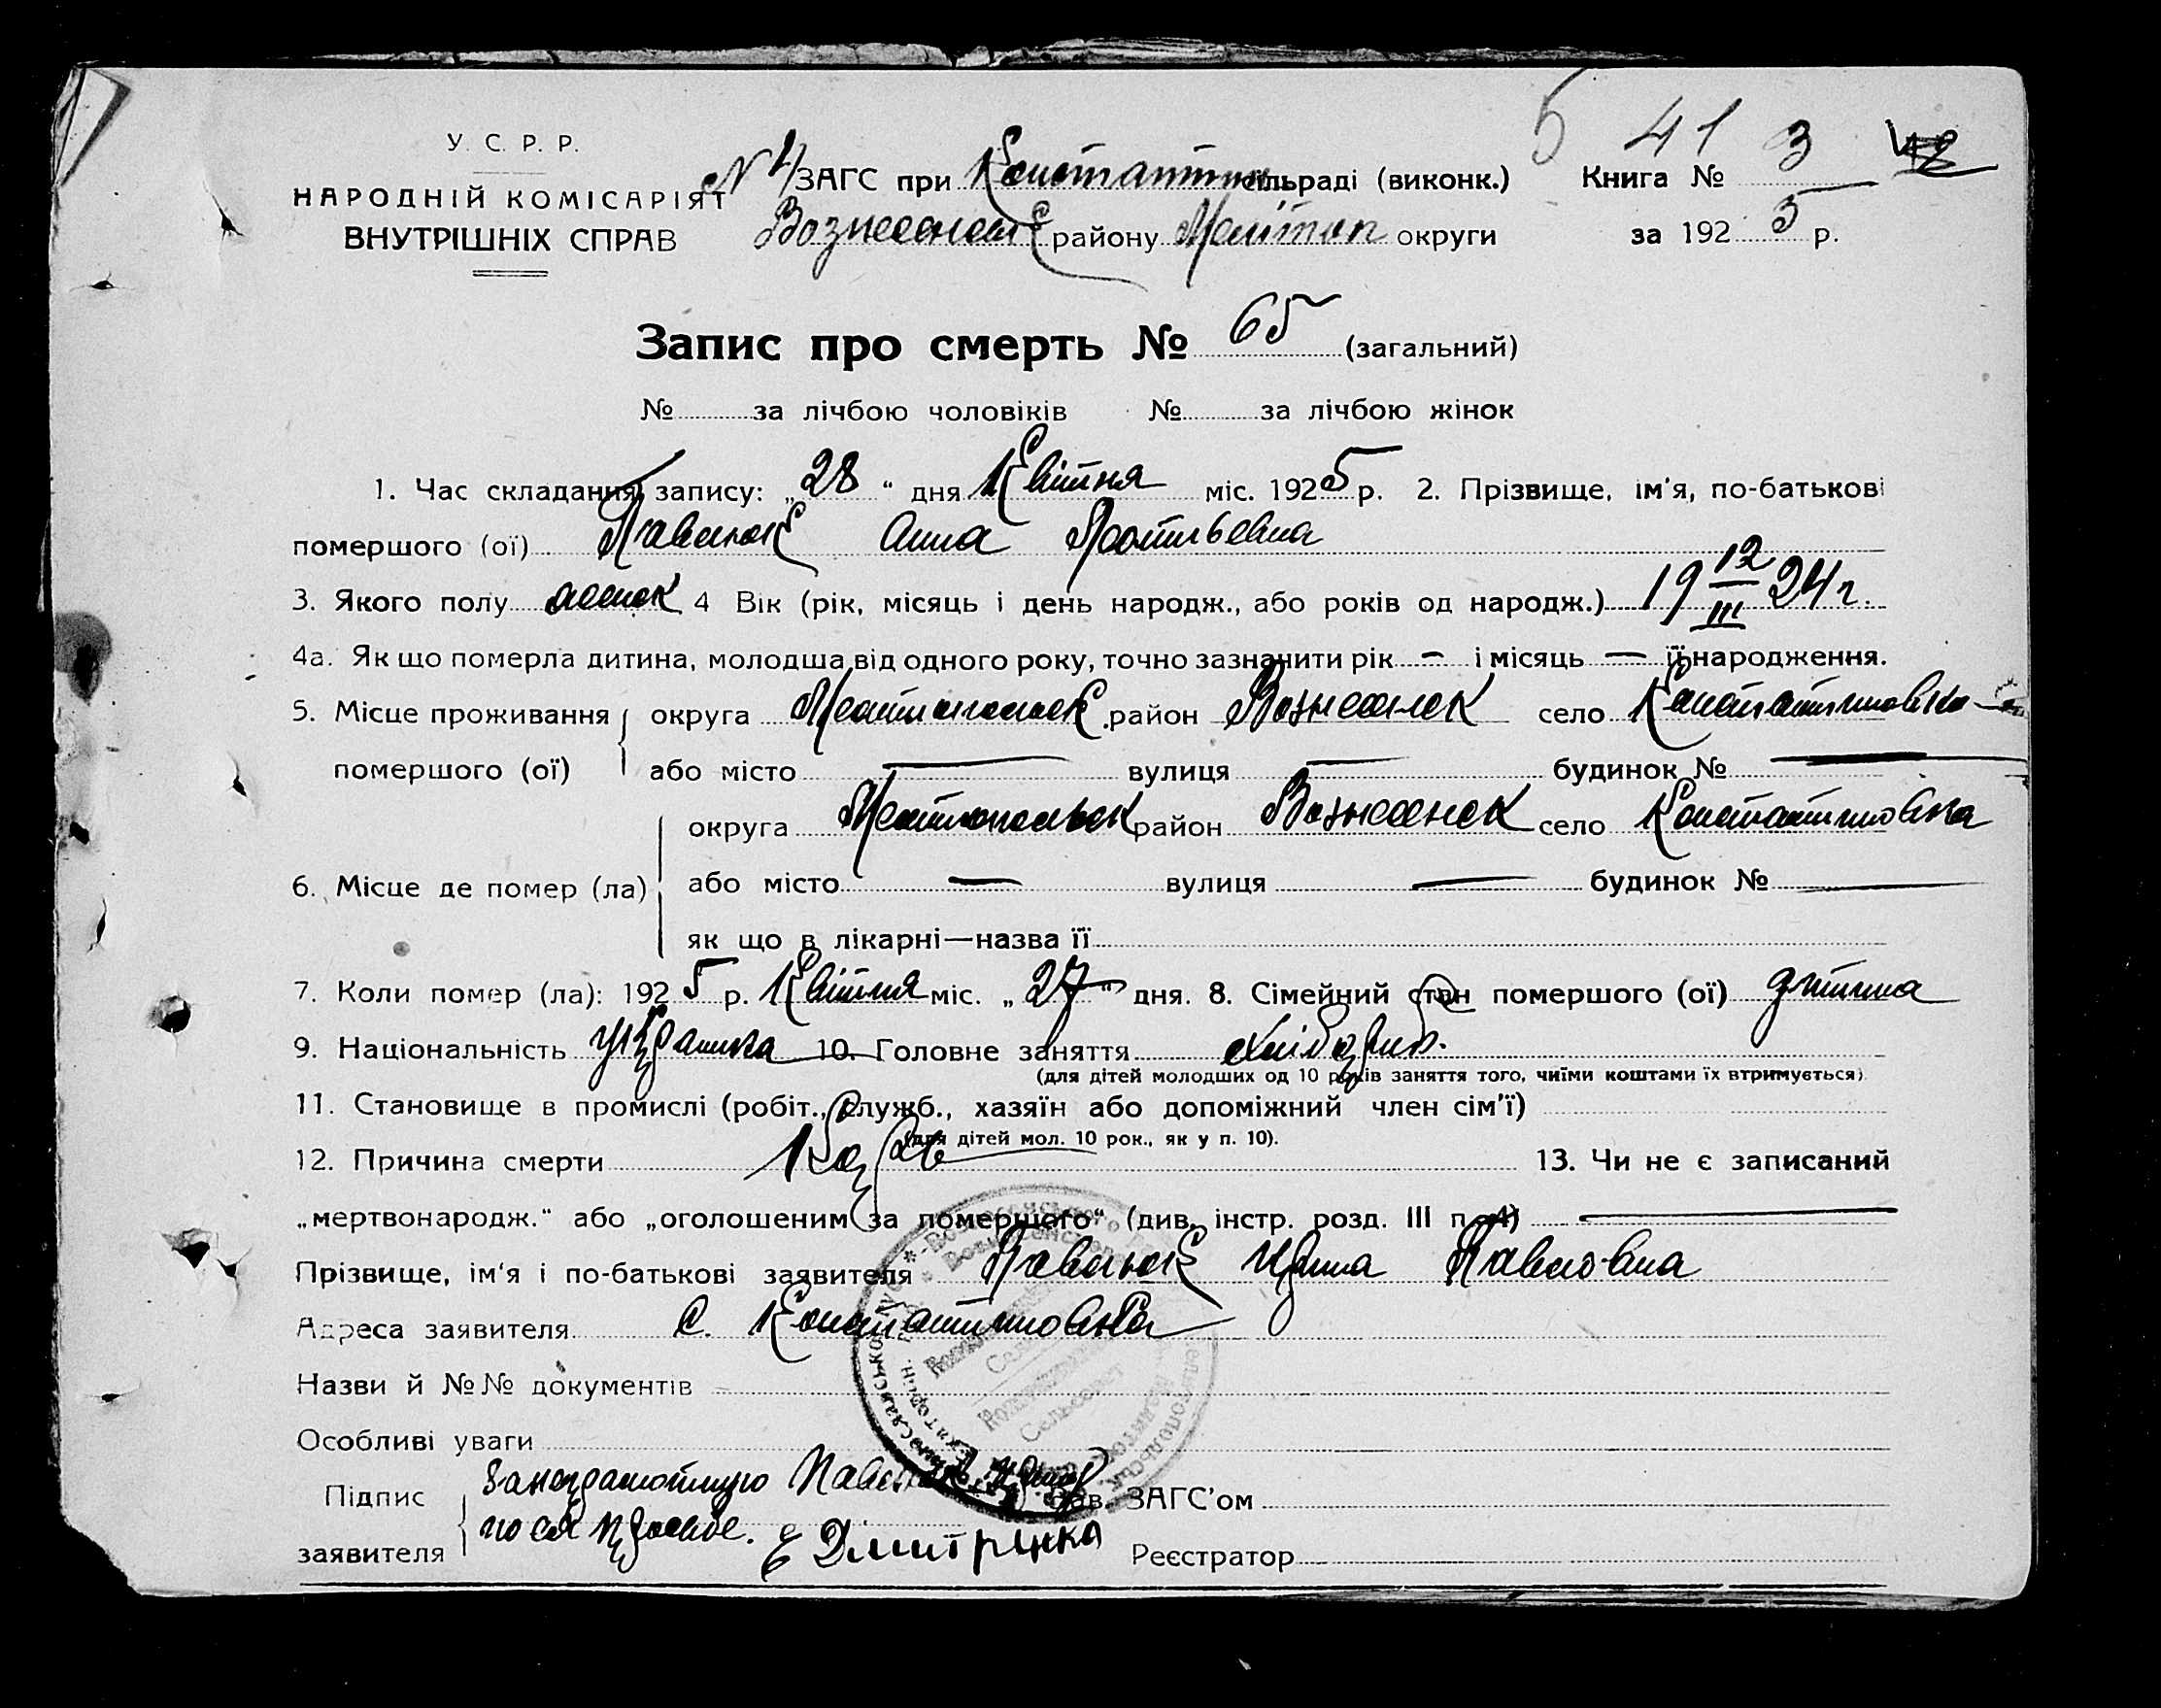 5 41 3
У. С. Р. Р.
НАРОДНІЙ КОМІСАРІЯТ
ВНУТРІШНІХ СПРАВ
N 4 ЗАГС при Константин сільраді (виконк.) Книга №
Вознесенск району Мелітоп округи за 1925 р.
Запис про смерть № 65 (загальний)
№ за лічбою чоловіків № за лічбою жінок
1. Час складання запису: „28“ дня Квітня міс. 1925 р. 2. Прізвище, ім'я, по-батькові
помершого (ої) Павлюк Анна
3. Якого полу женск 4 Вік (рік, місяць і день народж., або років од народж.) 19 12/III 24 г.
4а. Як що померла дитина, молодша від одного року, точно зазначити рік — і місяць — її народження.
5. Місце проживання округа район Вознесенск село Константиновка
помершого (ої) або місто — вулиця — будинок № —
округа Мелітопольск район Вознесенск село Константиновка
6. Місце де помер (ла) або місто — вулиця — будинок № —
як що в лікарні—назва її
7. Коли помер (ла): 1925 р. Квітня міс. „27“ дня. 8. Сімейний стан помершого (ої) дитина
9. Національність українка 10. Головне заняття хлібороб.
(для дітей молодших од 10 років заняття того, чиїми коштами їх втримується).
11. Становище в промислі (робіт., служб., хазяїн або допоміжний член сім'ї)
(для дітей мол. 10 рок., як у п. 10).
12. Причина смерти Корь 13. Чи не є записаний
„мертвонародж.“ або „оголошеним за помершого“ (див. інстр. розд. III п. 4) —
Прізвище, ім'я і по-батькові заявителя Павлюк Ирина Павловна
Адреса заявителя с. Константиновка
Назви й №№ документів
Особливі уваги
Підпис За неграмотную Павлюк Зав. ЗАГС'ом
заявителя по её просьбе. Дмитренко Реєстратор